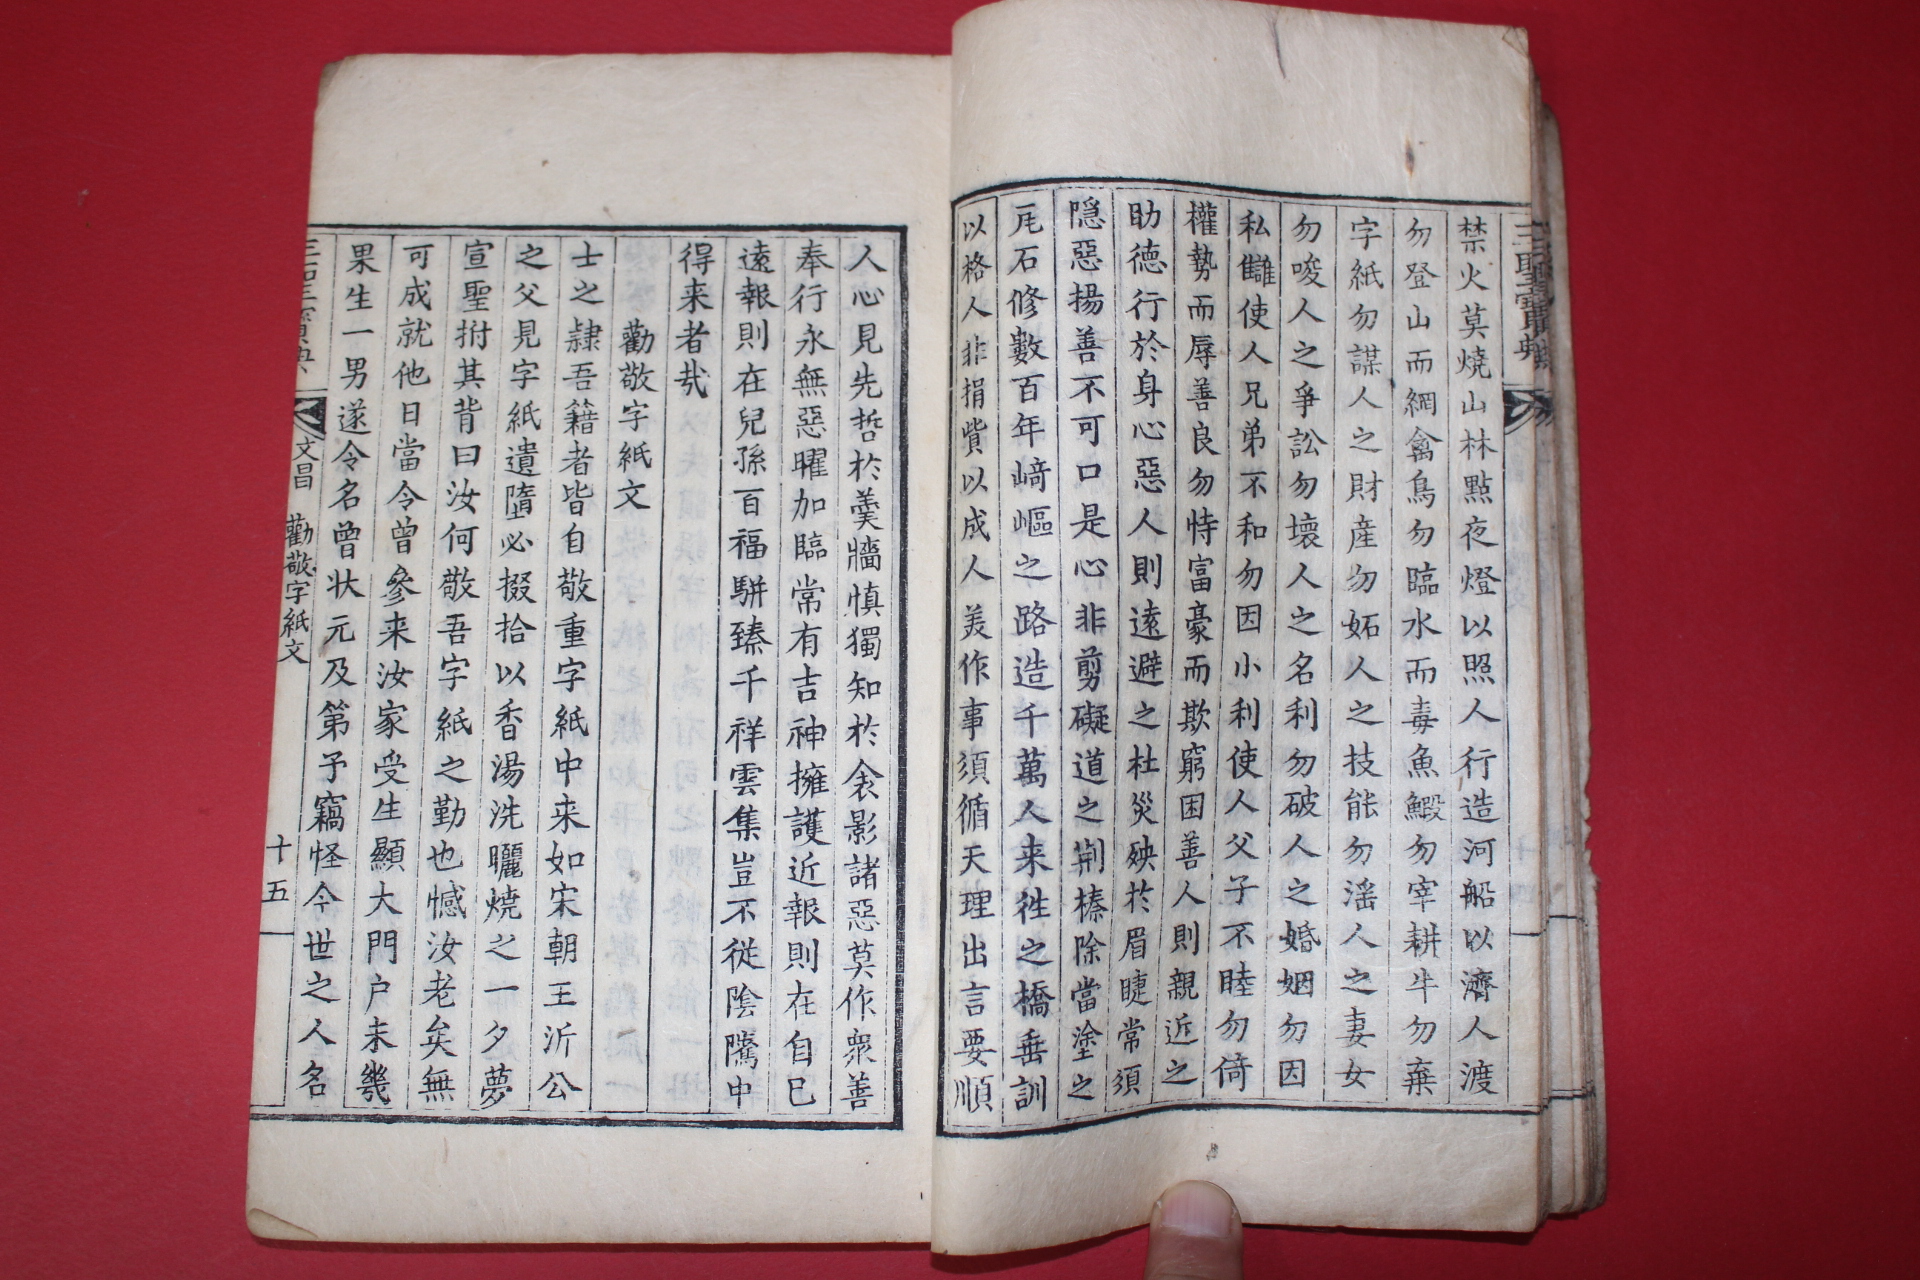 三聖寶典
禁火莫燒山林點夜燈以照人行造河船以濟人渡
勿登山而網禽鳥勿臨水而毒魚鰕勿宰耕牛勿棄
字紙勿謀人之財産勿妬人之技能勿滛人之妻女
勿唆人之爭訟勿壞人之名利勿破人之婚姻勿因
私讎使人兄弟不和勿因小利使人父子不睦勿倚
權勢而辱善良勿恃富豪而欺窮困善人則親近之
助德行於身心惡人則遠避之杜災殃於眉睫常須
隱惡揚善不可口是心非剪礙道之荆榛除當塗之
瓦石修數百年崎嶇之路造千萬人来徃之橋垂訓
以格人非捐貲以成人美作事須循天理出言要順
人心見先哲於羹牆慎獨知於衾影諸惡莫作衆善
奉行永無惡曜加臨常有吉神擁護近報則在自已
遠報則在兒孫百福駢臻千祥雲集豈不從陰騭中
得来者哉
勸敬字紙文
士之隷吾籍者皆自敬重字紙中来如宋朝王沂公
之父見字紙遺墮必掇拾以香湯洗曬燒之一夕夢
宣聖拊其背曰汝何敬吾字紙之勤也憾汝老矣無
可成就他日當令曾參来汝家受生顯大門户未幾
果生一男遂令名曾状元及第予竊怪今世之人名
三聖寶典
文昌 勸敬字紙文
十五